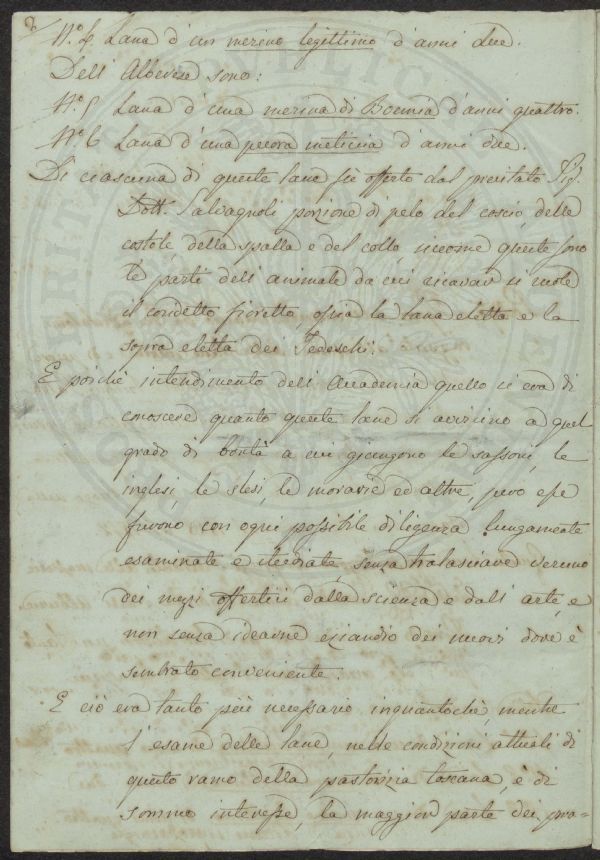 N.º 4 Lana d'un merino legittimo d'anni due.
Dell' Alberese sono:
N.º 5 Lana d'una merina di Boemia d'anni quattro.
N.º 6 Lana d'una pecora meticcia d'anni due.
Di ciascuna di queste lane fù offerto dal prenitato Sig.
Dott. Salvagnoli porzione di pelo del coscio, delle
costole, della spalla e del collo, siccome queste sono
le parti dell' animale da cui ricavar si vuole
il condetto fioretto, ossia la lana eletta e la
sopra eletta dei Tedeschi.
E poichè intendimento dell' Accademia quello si era di
conoscere quanto queste lane si avvicino a quel
grado di bontà a cui giungono le sassoni, le
inglesi, le slesi, le moravie ed altre, però esse
furono con ogni possibile diligenza lungamente
esaminate e studiate, senza tralasciare veruno
dei mezzi offertici dalla scienza e dall' arte, e
non senza idearne eziandio dei nuovi dove è
sembrato conveniente.
E ciò era tanto più necessario inquantochè, mentre
l' esame delle lane, nelle condizioni attuali di
questo ramo della pastorizia toscana, è di
sommo interesse, la maggior parte dei pra=